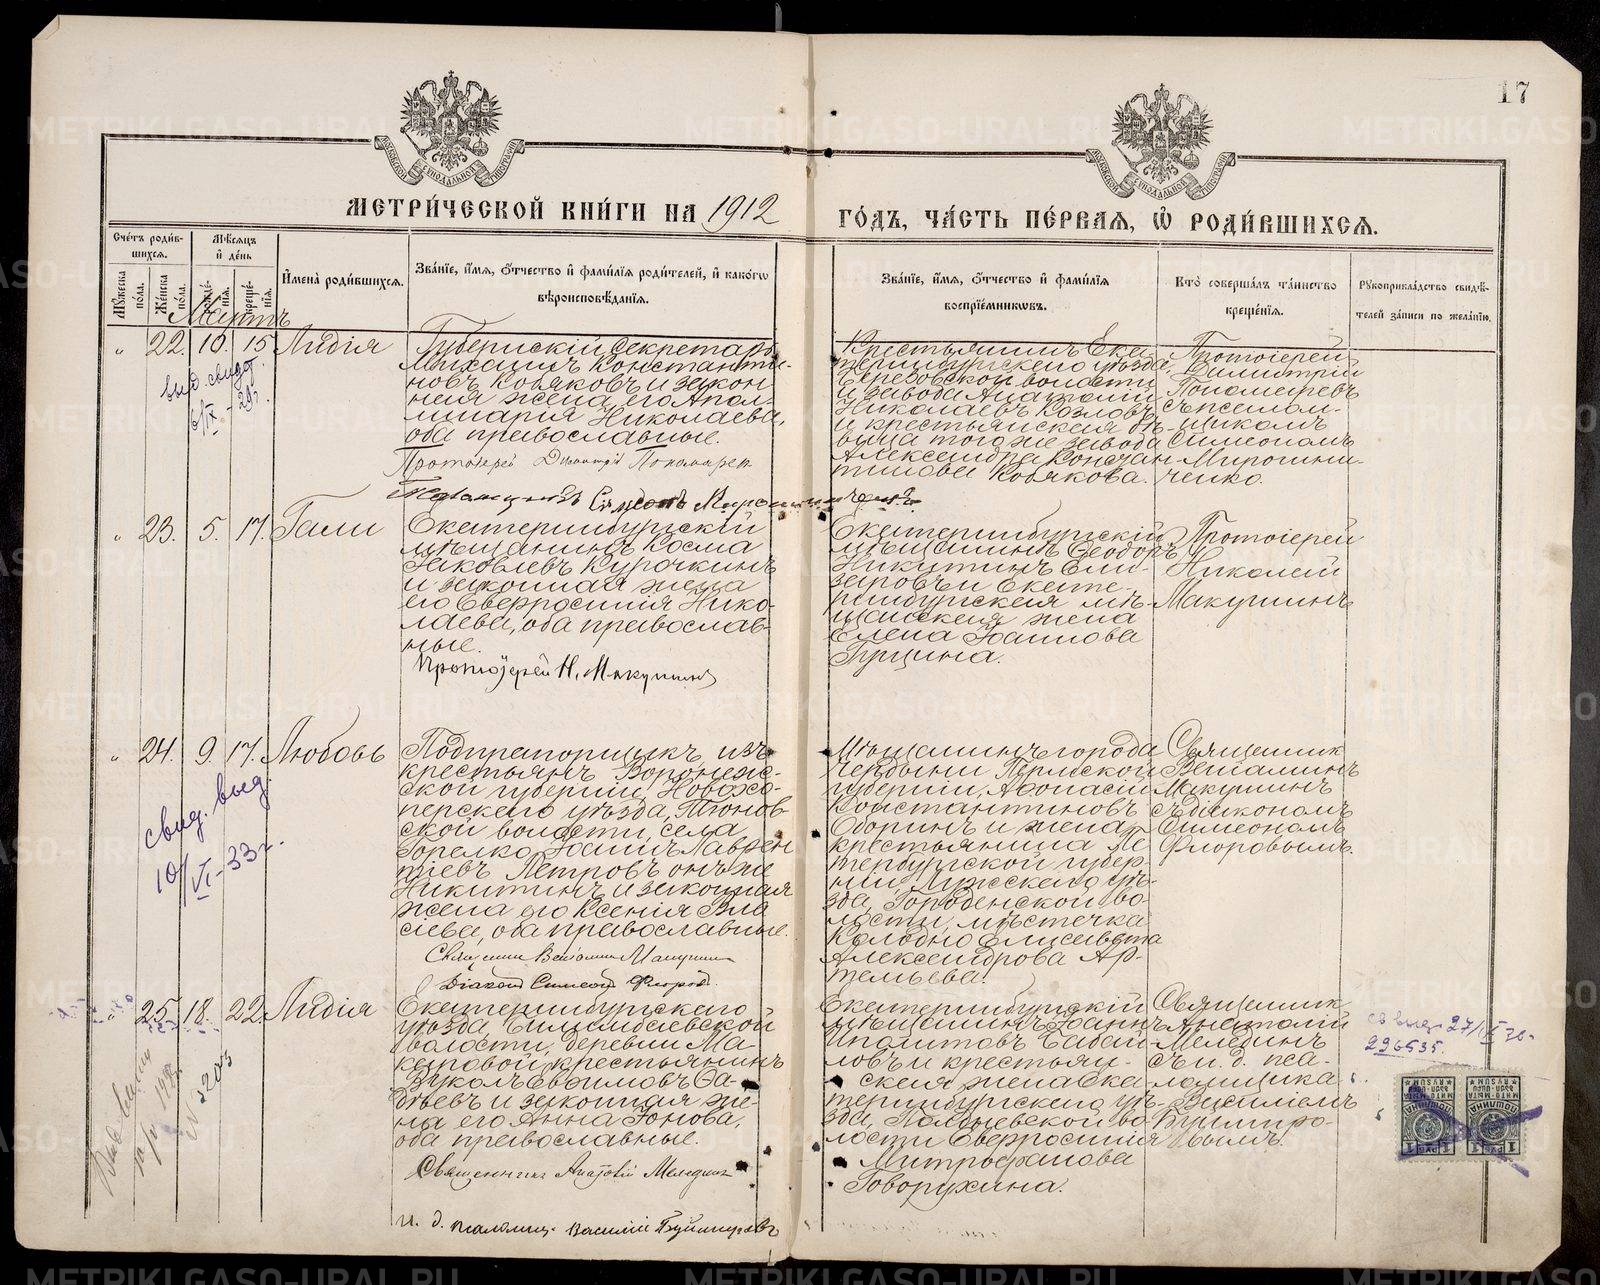 17
МЕТРИ́ЧЕСКОЙ КНИ́ГИ НА 1912
ГО́ДЪ, ЧА́СТЬ ПЕ́РВАЯ, Ѽ РОДИ́ВШИХСЯ.
Сче́тъ роди́вшихся.
Му́жеска по́ла.
Же́нска по́ла.
Мѣ́сяцъ и҆ де́нь
рожде́нія.
креще́нія.
И҆мена̀ роди́вшихся.
Зва́ніе, и҆́мя, ѻ҆́тчество и҆ фами́лія роди́телей, и҆ како́гѡ
вѣроисповѣ́данія.
Зва́ніе, и҆́мя, ѻ҆́тчество и҆ фами́лія
воспріе́мниковъ.
Кто̀ соверша́лъ та́инство
креще́нія.
Рукоприкла́дство свидѣ́-
телей за́писи по жела́нію.
Мартъ
" 22. 10. 15 Лидія
Губернскій Секретарь
Михаилъ Константи-
новъ Кобяковъ и закон
ная жена его Апол-
линарія Николаева,
оба православные.
Протоіерей Димитрій Пономарев
Псаломщикъ Симеонъ Мирошниченко
Крестьянинъ Ека-
теринбургскаго уѣзда,
Березовской волости
и завода Анатолій
Николаевъ Козловъ
и крестьянская дѣ-
вица того же завода
Александра Констан
тинова Кобякова.
Протоіерей
Димитрій
Пономаревъ
съ псалом-
щикомъ
Симеономъ
Мирошни-
ченко.
выд. свид.
6/IX - 29г.
" 23. 5. 17. Гали
Екатеринбургскій
мѣщанинъ Косма
Яковлевъ Курочкинъ
и законная жена
его Евфросинія Нико-
лаева, оба православ-
ные.
Протоіерей Н. Макушинъ
Екатеринбургскій
мѣщанинъ Ѳеодоръ
Никитинъ Ели-
заровъ и Екате-
ринбургская мѣ-
щанская жена
Елена Іоаннова
Пущина.
Протоіерей
Николай
Макушинъ
" 24. 9. 17. Любовь
Подпрапорщикъ, изъ
крестьянъ Воронеж-
ской губерніи, Новохо-
перскаго уѣзда,
ской волости, села
Горелко, Іоаннъ Лаврен
тіевъ Петровъ онъ же
Никитинъ и законная
жена его Ксенія Вла
сіева, оба православные.
Священникъ Веніаминъ Макушинъ
Діаконъ Симеонъ Флоров.
Мѣщанинъ города
Чердыни Пермской
губерніи, Аѳанасій
Константиновъ
Оборинъ и жена
крестьянина Пе
тербургской губер-
ніи, Лужскаго уѣ-
зда, Городенской во-
лости, мѣстечка
Колодно Елисавета
Александрова Ар-
темьева.
Священник
Веніаминъ
Макушинъ
съ діакономъ
Симеономъ
Флоровымъ.
свид. выд.
10/VI - 33 г.
" 25. 18. 22. Лидія
Екатеринбургскаго
уѣзда, Билимбаевской
волости, деревни Ма-
каровой, крестьянинъ
Вуколъ Евѳимовъ Ѳа-
дѣевъ и законная же-
на его Анна Іонова,
оба православные.
Священникъ Анатолій Мелединъ
и. д. псаломщ. Василій
Екатеринбургскій
мѣщанинъ Іоаннъ
Ипполитовъ Бабай-
ловъ и крестьян-
ская жена Ека
теринбургскаго уѣ-
зда, во
лости Евфросинія
Митрофанова
Говорухина.
Священник
Анатолій
Мелединъ
съ и. д. пса-
ломщика
Василіемъ
N 3205
св выд. 27/IX 30г.
296535.
1 РУБ 1
ПОШЛИНА